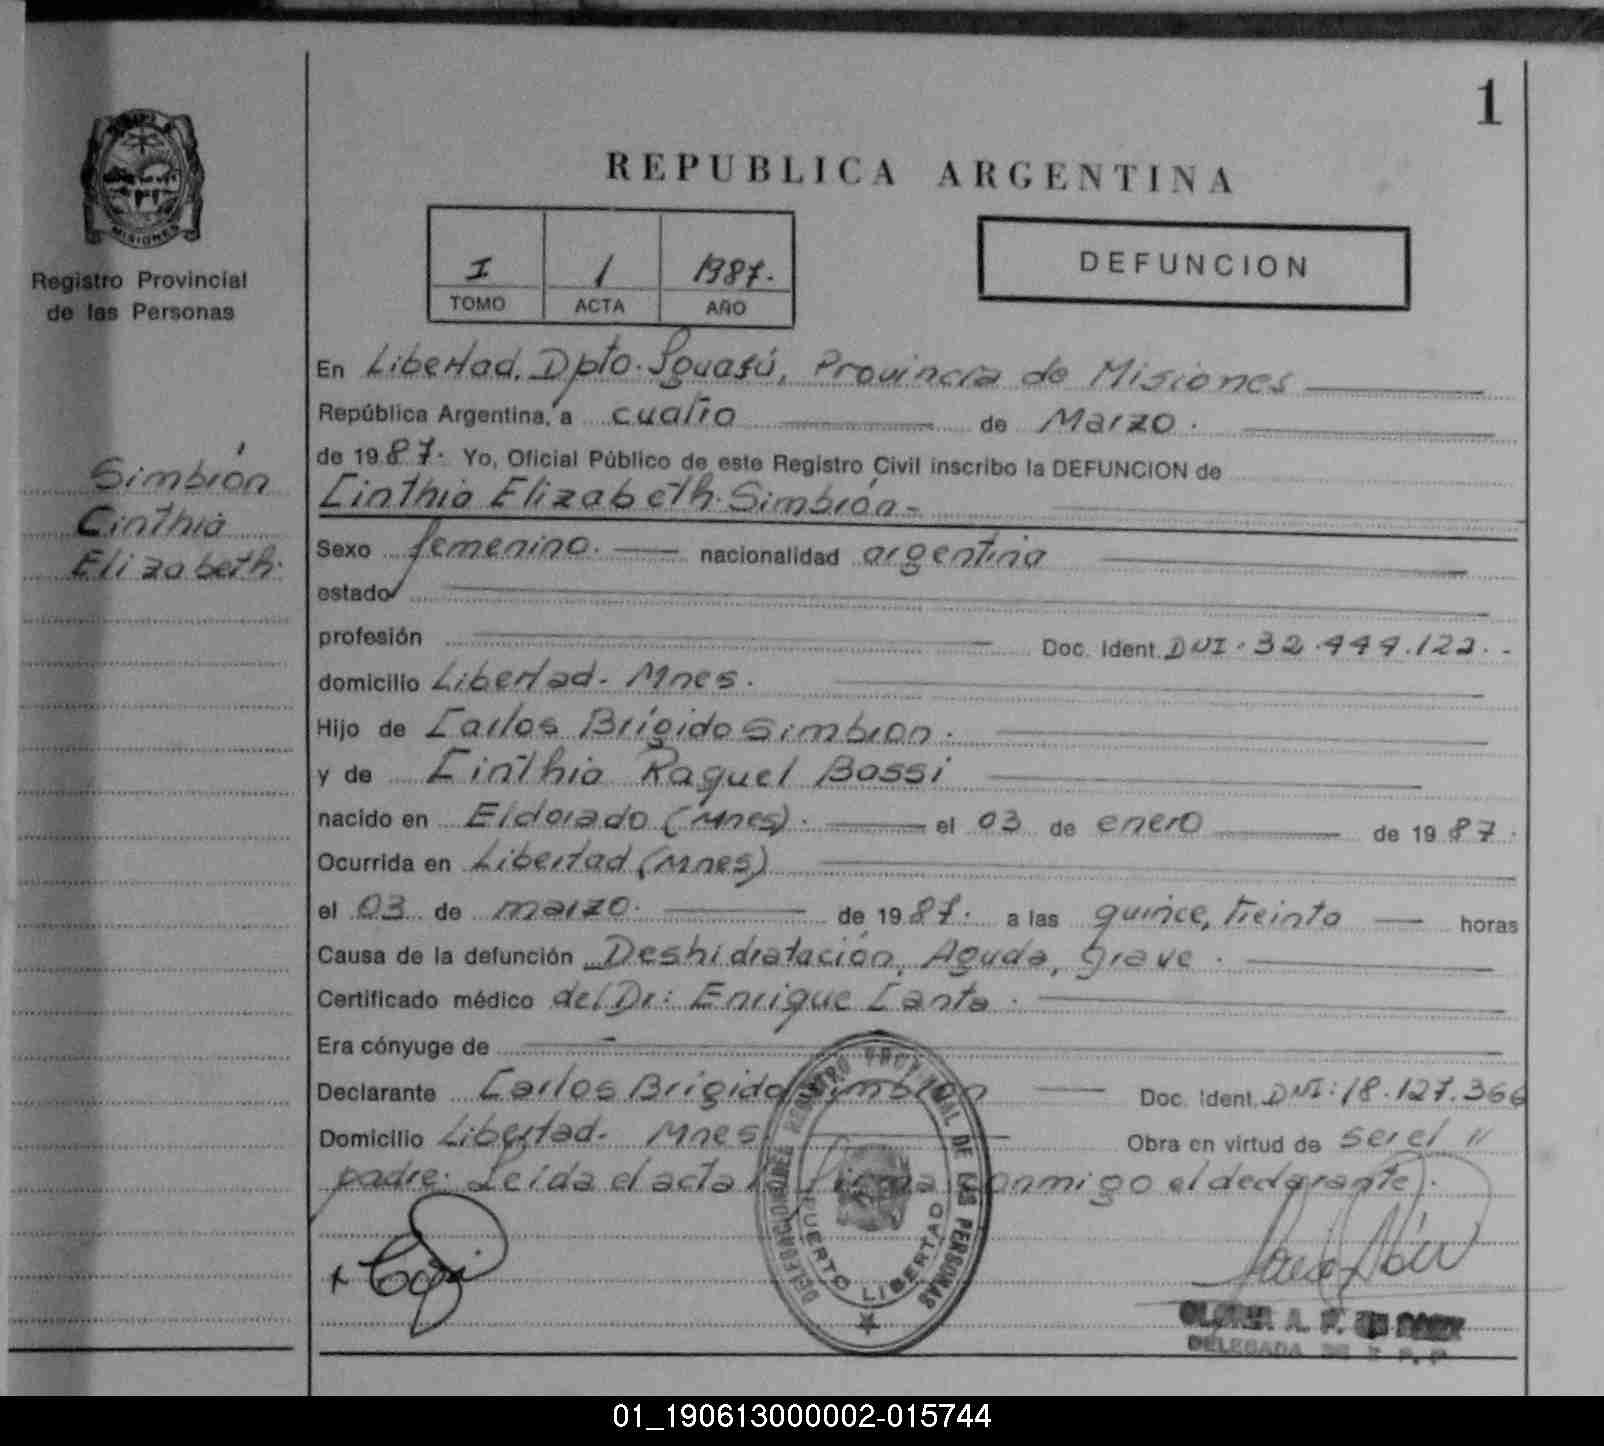 1
MISIONES
Registro Provincial
de las Personas
REPUBLICA ARGENTINA
I 1 1987.
TOMO ACTA AÑO
DEFUNCION
Simbión
Cinthia
Elizabeth.
En Libertad, Dpto. Iguazú, Provincia de Misiones
República Argentina, a cuatro de Marzo.
de 1987. Yo, Oficial Público de este Registro Civil inscribo la DEFUNCION de
Cinthia Elizabeth Simbión.-
Sexo femenino. nacionalidad argentina
estado
profesión Doc. Ident. DNI. 32.444.122.-
domicilio Libertad. Mnes.
Hijo de Carlos Brígido Simbron.
y de Cinthia Raquel Bossi
nacido en Eldorado (Mnes). el 03 de enero de 1987.
Ocurrida en Libertad (Mnes)
el 03 de marzo. de 1987. a las quince, treinta horas
Causa de la defunción Deshidratación, Aguda, grave.
Certificado médico del Dr: Enrique Canta.
Era cónyuge de
Declarante Carlos Brígido Simbron Doc. Ident. DNI: 18.127.366
Domicilio Libertad. Mnes Obra en virtud de ser el "
padre. Leída el acta la firma conmigo el declarante.
REGISTRO PROVINCIAL DE LAS PERSONAS
PUERTO LIBERTAD
DELEGADA
01_190613000002-015744